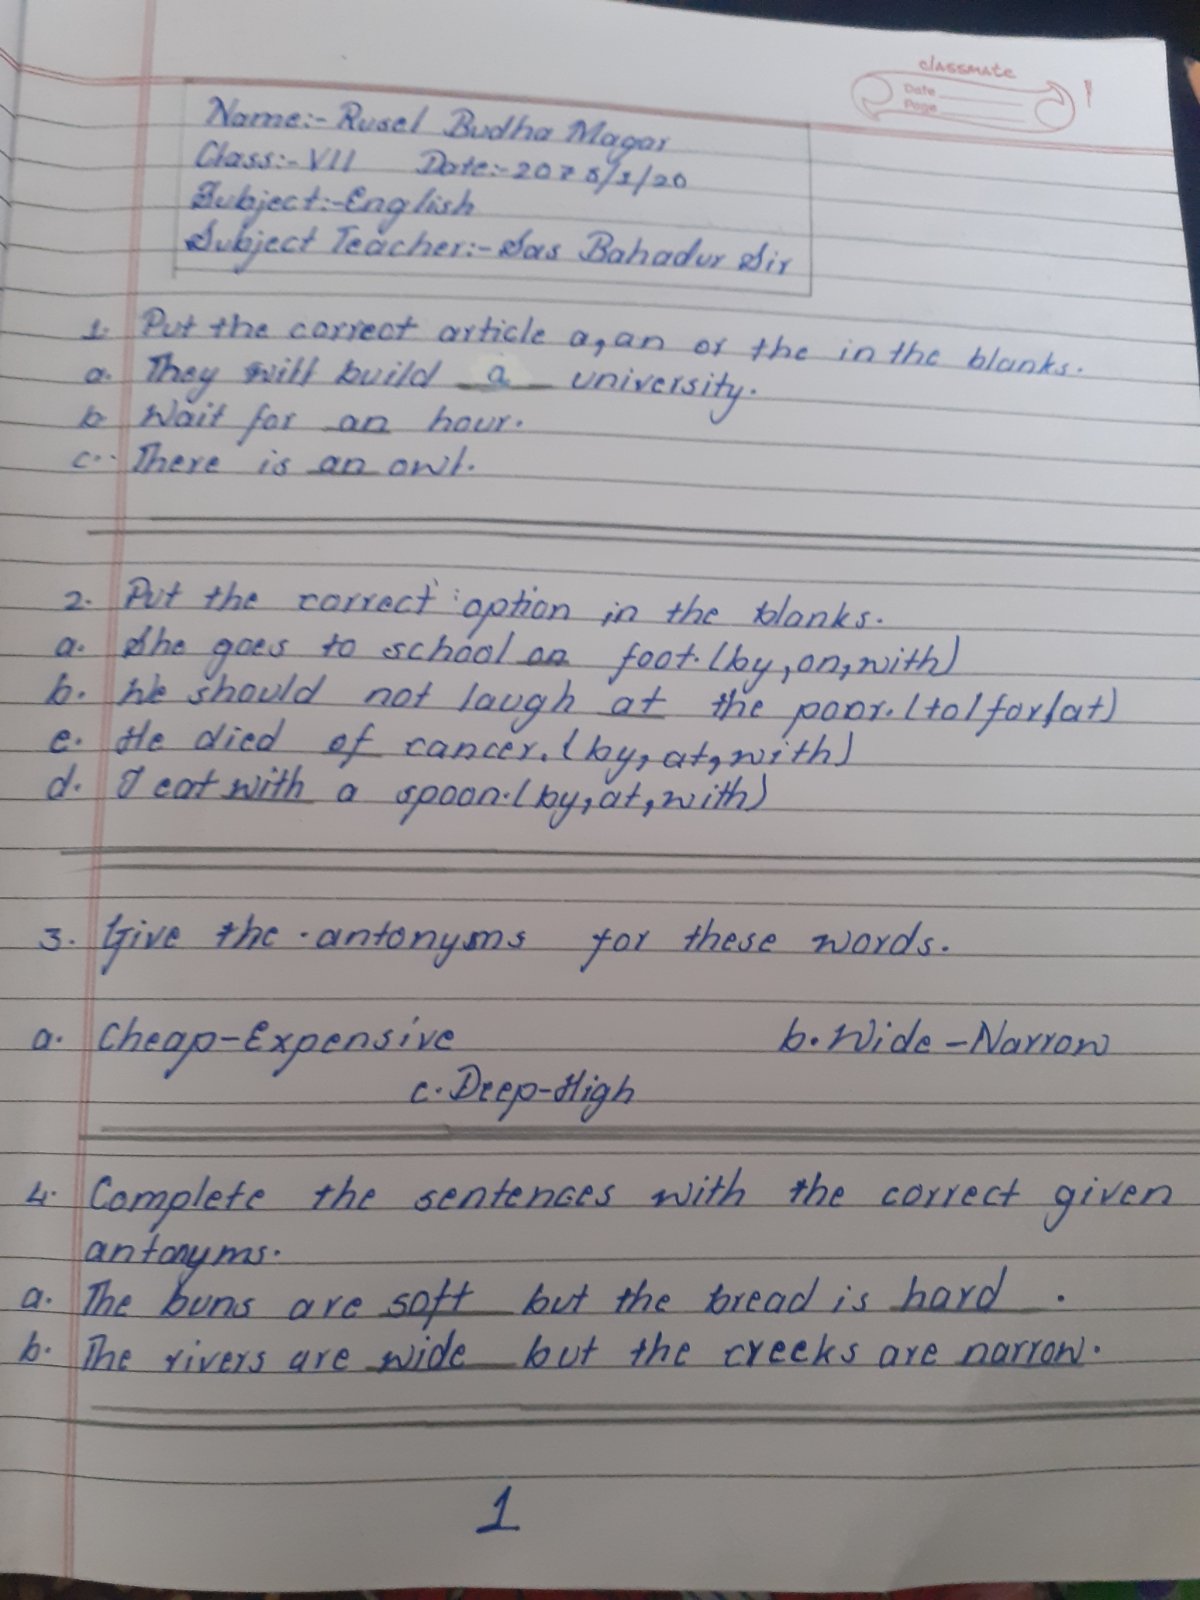 classmate
Date
Page
Name:- Rusel Budha Magar
Class:- VII Date:- 2078/1/20
Subject:-English
Subject Teacher:- Sas Bahadur Sir
1. Put the correct article a,an or the in the blanks.
a. They will build a university.
b. Wait for an hour.
c. There is an owl.
2. Put the correct option in the blanks.
a. She goes to school on foot.(by,on,with)
b. We should not laugh at the poor.(to/for/at)
c. He died of cancer.(by,at,with)
d. I eat with a spoon.(by,at,with)
3. Give the antonyms for these words.
a. Cheap-Expensive b. Wide-Narrow
c. Deep-High
4. Complete the sentences with the correct given
antonyms.
a. The buns are soft but the bread is hard.
b. The rivers are wide but the creeks are narrow.
1